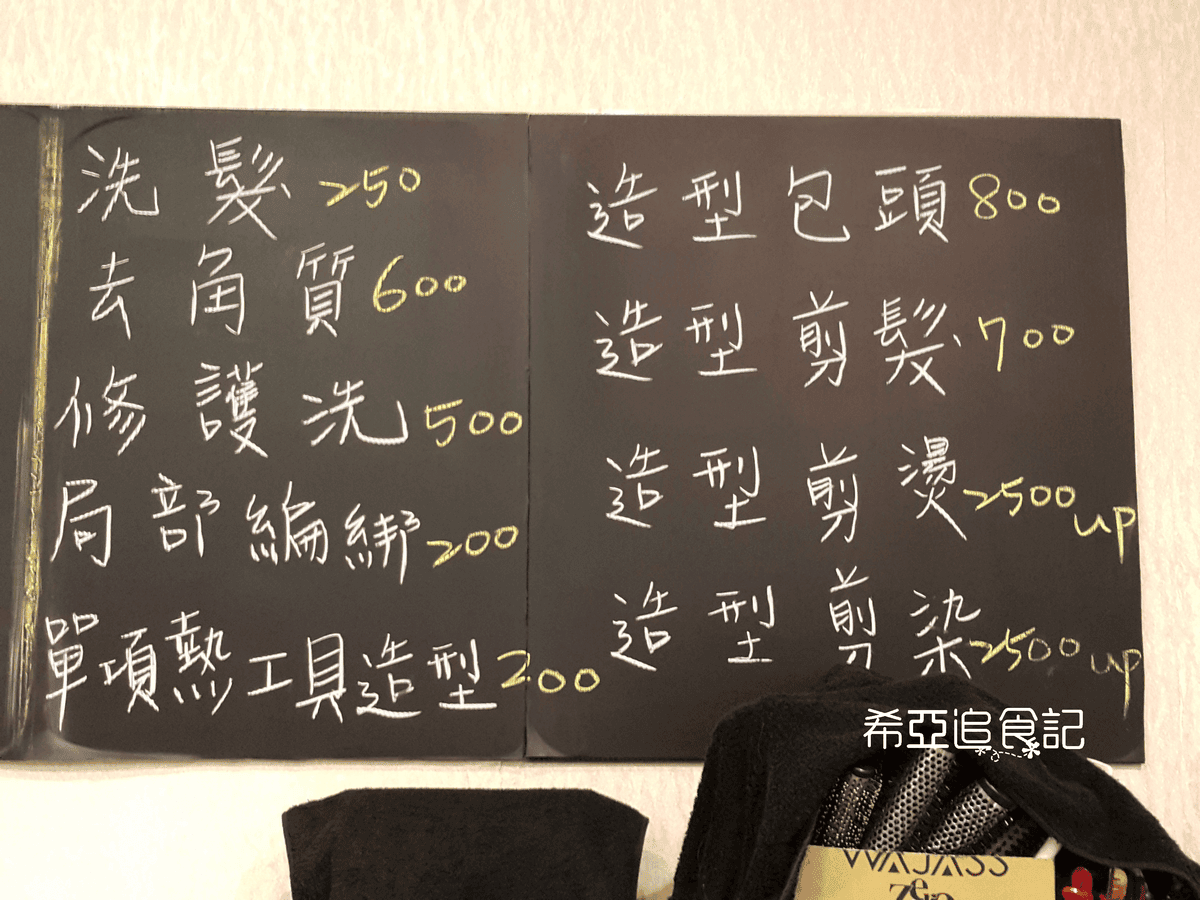 洗髮 250
去角質 600
修護洗 500
局部編綁 200
單項熱工具造型 200
造型包頭 800
造型剪髮 700
造型剪燙 2500 up
造型剪染 2500 up
希亞追食記
WAJASS
zero